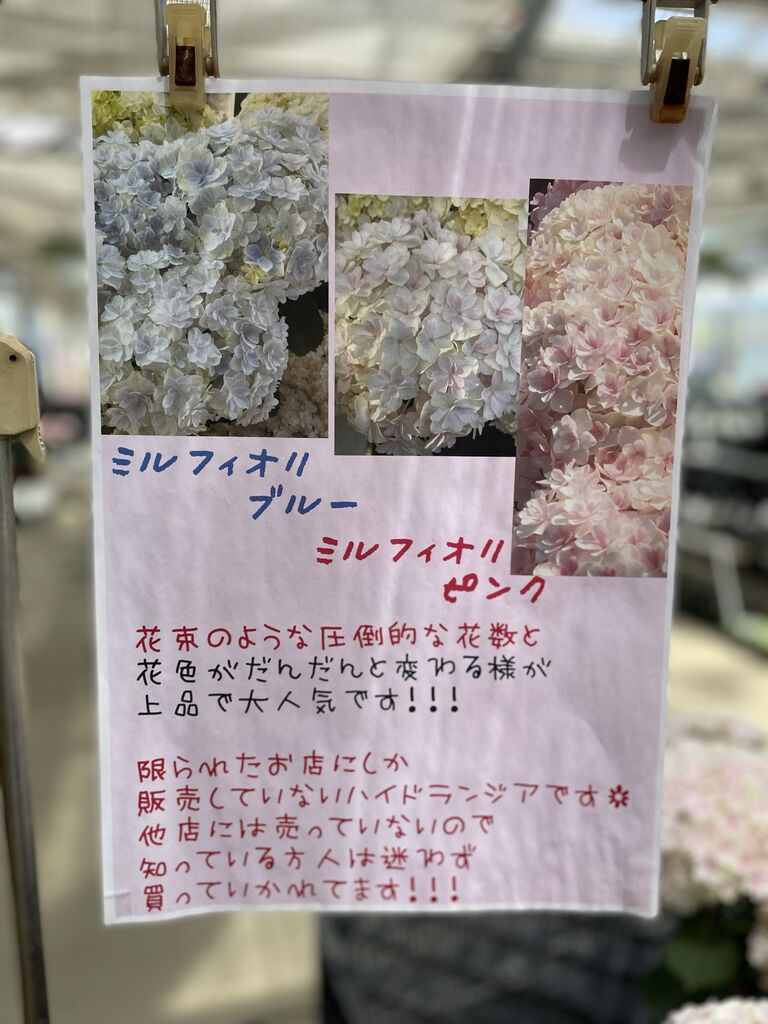 ミルフィオリ
ブルー
ミルフィオリ
ピンク
花束のような圧倒的な花数と
花色がだんだんと変わる様が
上品で大人気です!!!
限られたお店にしか
販売していないハイドランジアです※
他店には売っていないので
知っている方人は迷わず
買っていかれてます!!!